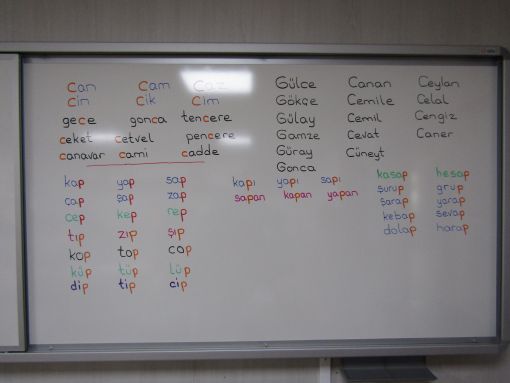 Can Cam Caz
Cin Cik Cim
gece gonca tencere
ceket cetvel pencere
canavar cami cadde
Gülce Canan Ceylan
Gökçe Cemile Celal
Gülay Cemil Cengiz
Gamze Cevat Caner
Güray Cüneyt
Gonca
kap yap sap
cap şap zap
cep kep rep
tıp zıp şıp
kop top cop
küp tüp lüp
dip tip cip
kapı yapı sapı
sapan kapan yapan
kasap hesap
şurup grup
şarap yarap
kebap sevap
dolap harap